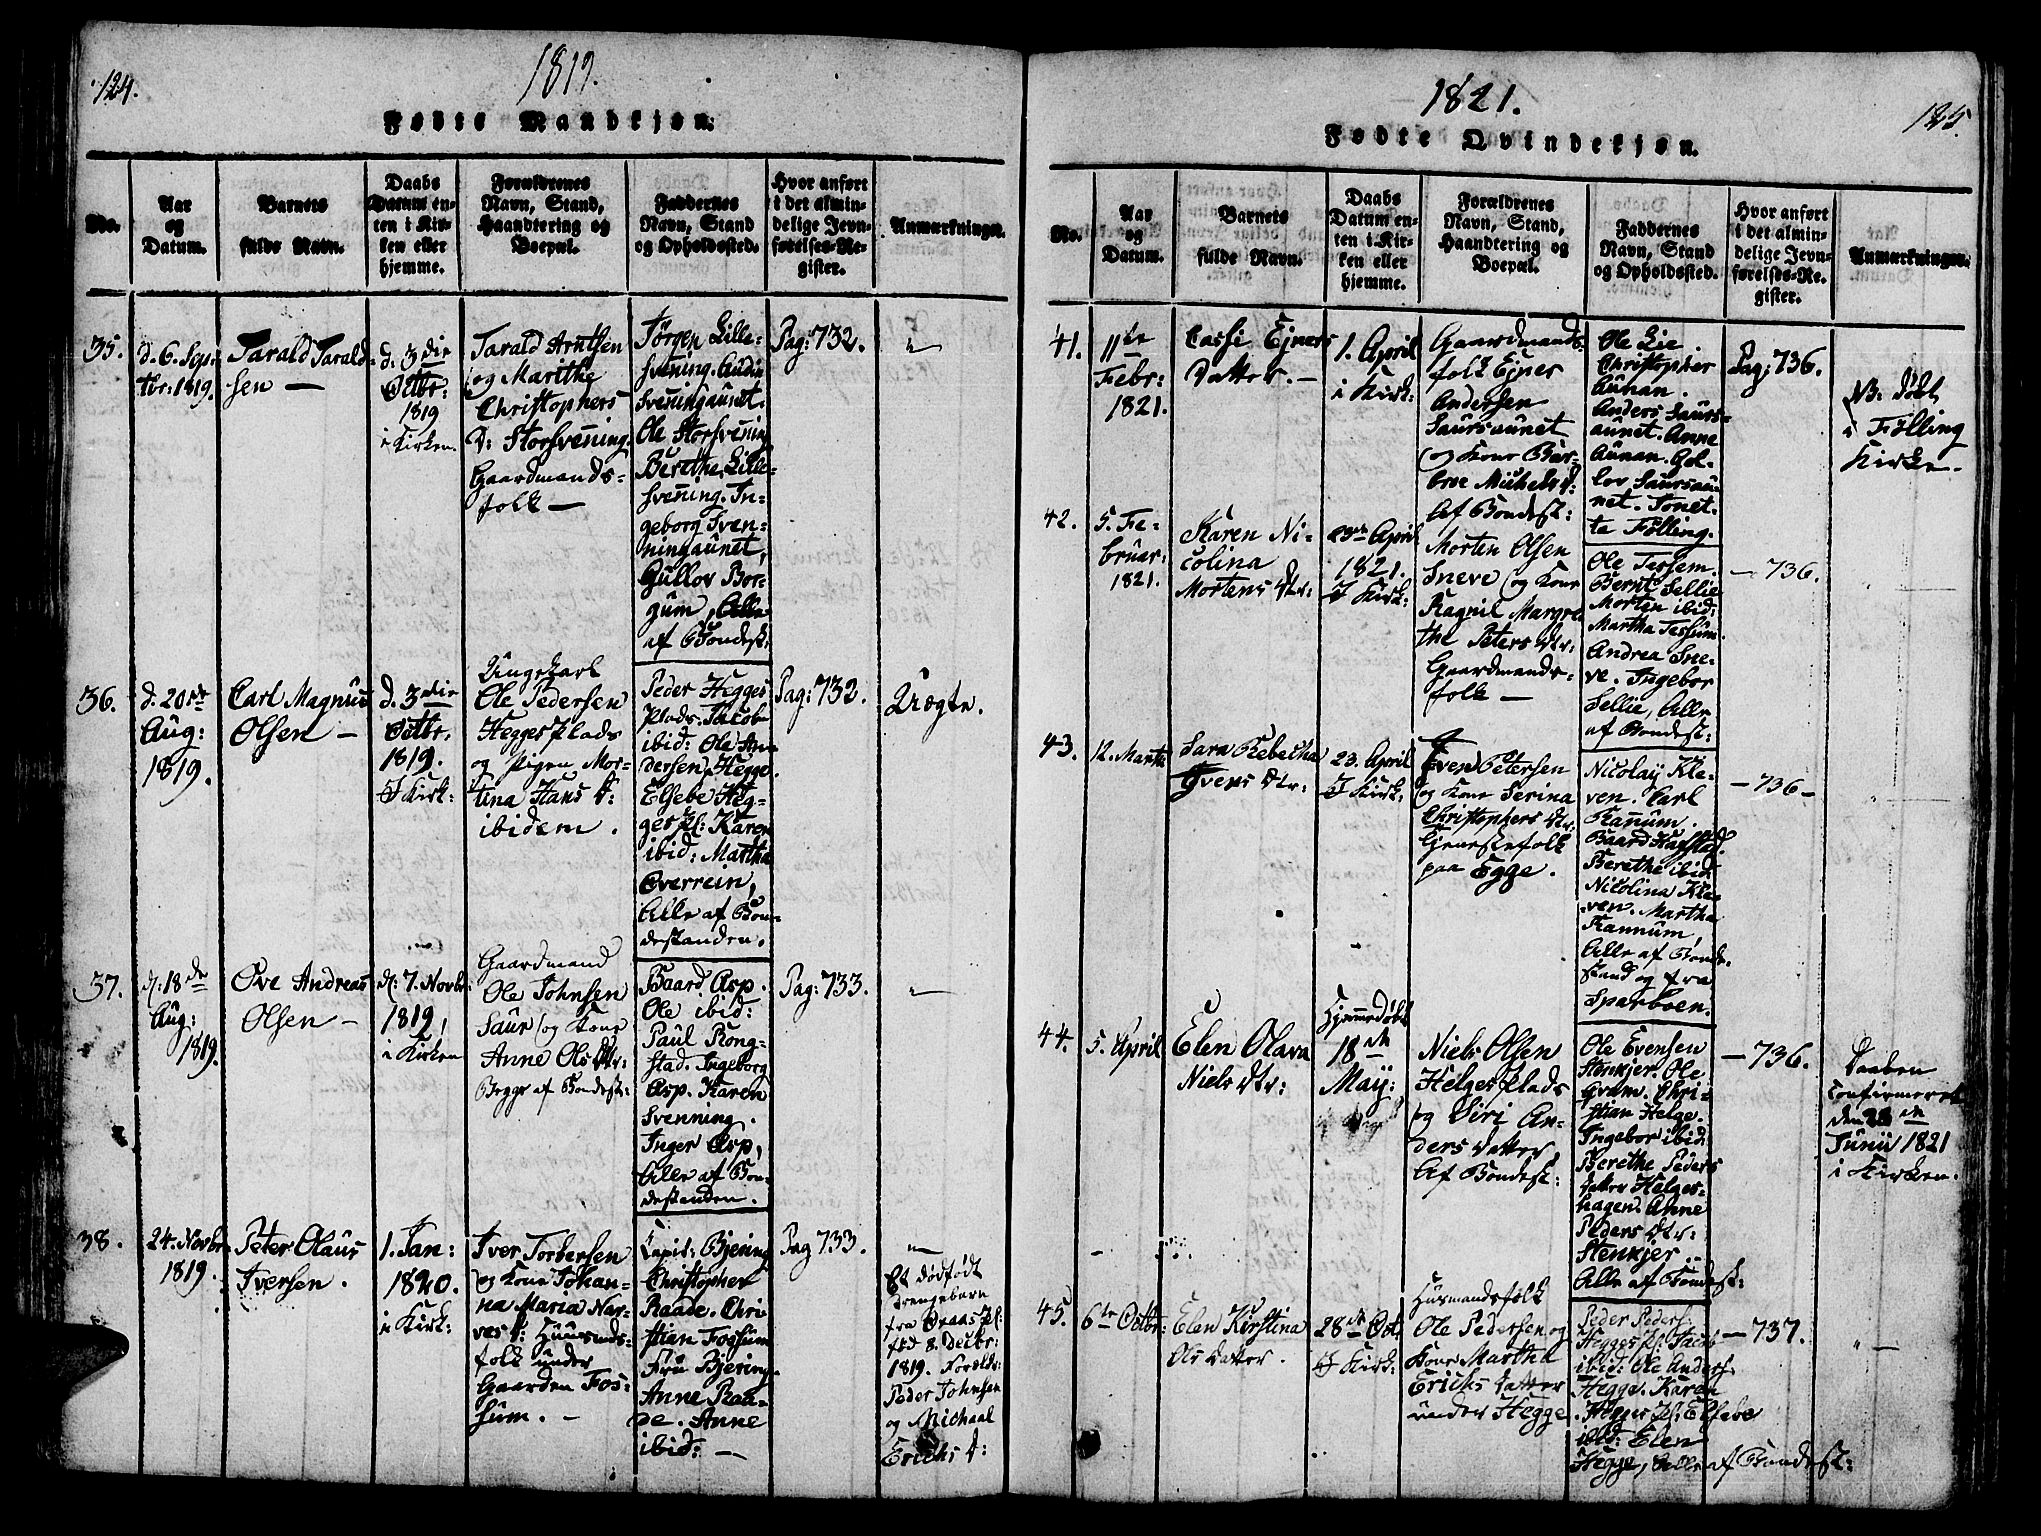 124.
1819.
Fødte Mandkjøn.
No.
Aar
og
Datum.
Barnets
fulde Navn.
Daabs
Datum en-
ten i Kir-
ken eller
hjemme.
Forældrenes
Navn, Stand,
Haandtering og
Boepæl.
Faddernes
Navn, Stand
og Opholdssted.
Hvor anført
i det almin-
delige Jevn-
førelses-Re-
gister.
Anmærkninger.
35.
d. 6. Sept-
tbr: 1819.
Tarald Tarald-
sen —
d. 3die
Octbr.
1819
i Kirken.
Tarald Arntsen
og Marithe
Christophers
D: Storsvening.
Gaardmands-
folk —
Jørgen Lille-
svening. Audin
Sveningaunet.
Ole Storsvening
Berethe Lille-
svening. In-
geborg Sven-
ningaunet,
Gullov Bor-
gum, Alle
af Bondest:
Pag: 732.
36.
d. 20de
Aug:
1819.
Carl Magnus
Olsen —
d. 3die
Octbr.
1819.
I Kirk:
Ungekarl
Ole Pedersen
Hegges Plads
og Pigen Mor-
tina Hans D:
ibidem.
Peder Hegges
Plads. Jacob
ibid: Ole An-
dersen Hegge.
Elsebe Heg-
ges Pl: Karen
ibid: Martha
Overrein,
Alle af Bon-
destanden.
Pag: 732.
Uægte.
37.
d: 18de
Aug:
1819.
Ove Andreas
Olsen —
d: 7. Novbr:
1819,
i Kirken
Gaardmand
Ole Johnsen
Saur og Kone
Anne Ols Dtr:
Begge af Bondest:
Baard Asp.
Ole ibid:
Paul Rong-
stad. Ingeborg
Asp. Karen
Svenning.
Inger Asp,
Alle af Bon-
destanden.
Pag: 733.
38.
24. Novbr.
1819.
Peter Olaus
Iversen.
1. Jan:
1820.
i Kirk:
Iver Torbersen
og Kone Johan-
na Maria Nar-
ves D: Huusmands-
folk under
Gaarden Fos-
sum. —
Capit: Bjering
Christopher
Raade. Chri
stian Fossum
Fru Bjering
Anne Raa-
de. Anne
ibid: —
Pag 733.
Et dødfødt
Drengebarn
fra
fød 8. Decbr:
1819.
Peder Johnsen
og Michaal
Erichs D:
1821.
125.
Fødte Qvindekjøn.
No.
Aar
og
Datum.
Barnets
fulde Navn.
Daabs
Datum en-
ten i Kir-
ken eller
hjemme.
Forældrenes
Navn, Stand,
Haandtering og
Boepæl.
Faddernes
Navn, Stand
og Opholdssted.
Hvor anført
i det almin-
delige Jevn-
førelses-Re-
gister.
Anmærkninger.
41.
11te
Febr:
1821.
Cassi Ejners
Datter. —
1. April
i Kirk:
Gaardmands-
folk Ejner
Andersen
Saursaunet
og Kone Bar-
broe Michels D:
Af Bondest:
Ole Lie.
Christopher
Aunan.
Anders Saurs-
aunet. Anne
Aunan. Gol-
lov Saursau-
net. Tonet-
te Følling.
Pag: 736.
NB: Døbt
i Følling
Kirke.
42.
5. Fe-
bruar:
1821.
Karen Ni-
colina
Mortens Dtr:
April
1821.
I Kirk:
Morten Olsen
Sneve og Kone
Ragnil Margre
the Peters Dtr:
Gaardmands-
folk —
Ole Tessem.
Bernt Sellie
Morten ibid:
Martha Tessum.
Andrea Sne-
ve. Ingebor
Sellie, Alle
af Bondest:
— 736.
43.
12. Marts
Sara Rebecha
Evens Dtr:
23. April
I Kirk:
Even Petersen
og Kone Serina
Christophers Dtr:
folk
paa Egge.
Nicolay Kle-
ven. Carl
Rannum.
Baard Hagsted.
Berethe ibid
Nicolina Kle-
ven. Martha
Rannum,
Alle af Bonde-
stand og fra
Sparboen.
— 736 —
44.
5. April
Elen Olava
Niels Dtr:
Hjemmedøbt
18de
May:
Niels Olsen
Helges Plads
og Siri An-
ders Datter,
Af Bondest:
Ole Evensen
Stenkjer. Ole
Qvam. Chri-
stian Helge.
Ingebor ibid:
Berethe Peders
Datter Helges-
hagen. Anne
Peders Dtr:
Stenkjer.
Alle af Bondest:
— 736.
Daaben
confirmeret
den
Junii 1821
i Kirken.
45.
6te Octbr.
Elen Kirstina
Ols Datter.
28de Oct.
I Kirk:
Husmandsfolk
Ole Pedersen og
Kone Martha
Erichs Datter
under Hegge
Peder Peders:
Hegges Pl: Jacob
ibid: Ole Anders:
Hegge. Karen
Hegges Pl: Elsebe
ibid: Elen
Hegge, Alle af Bondest:
— 737.